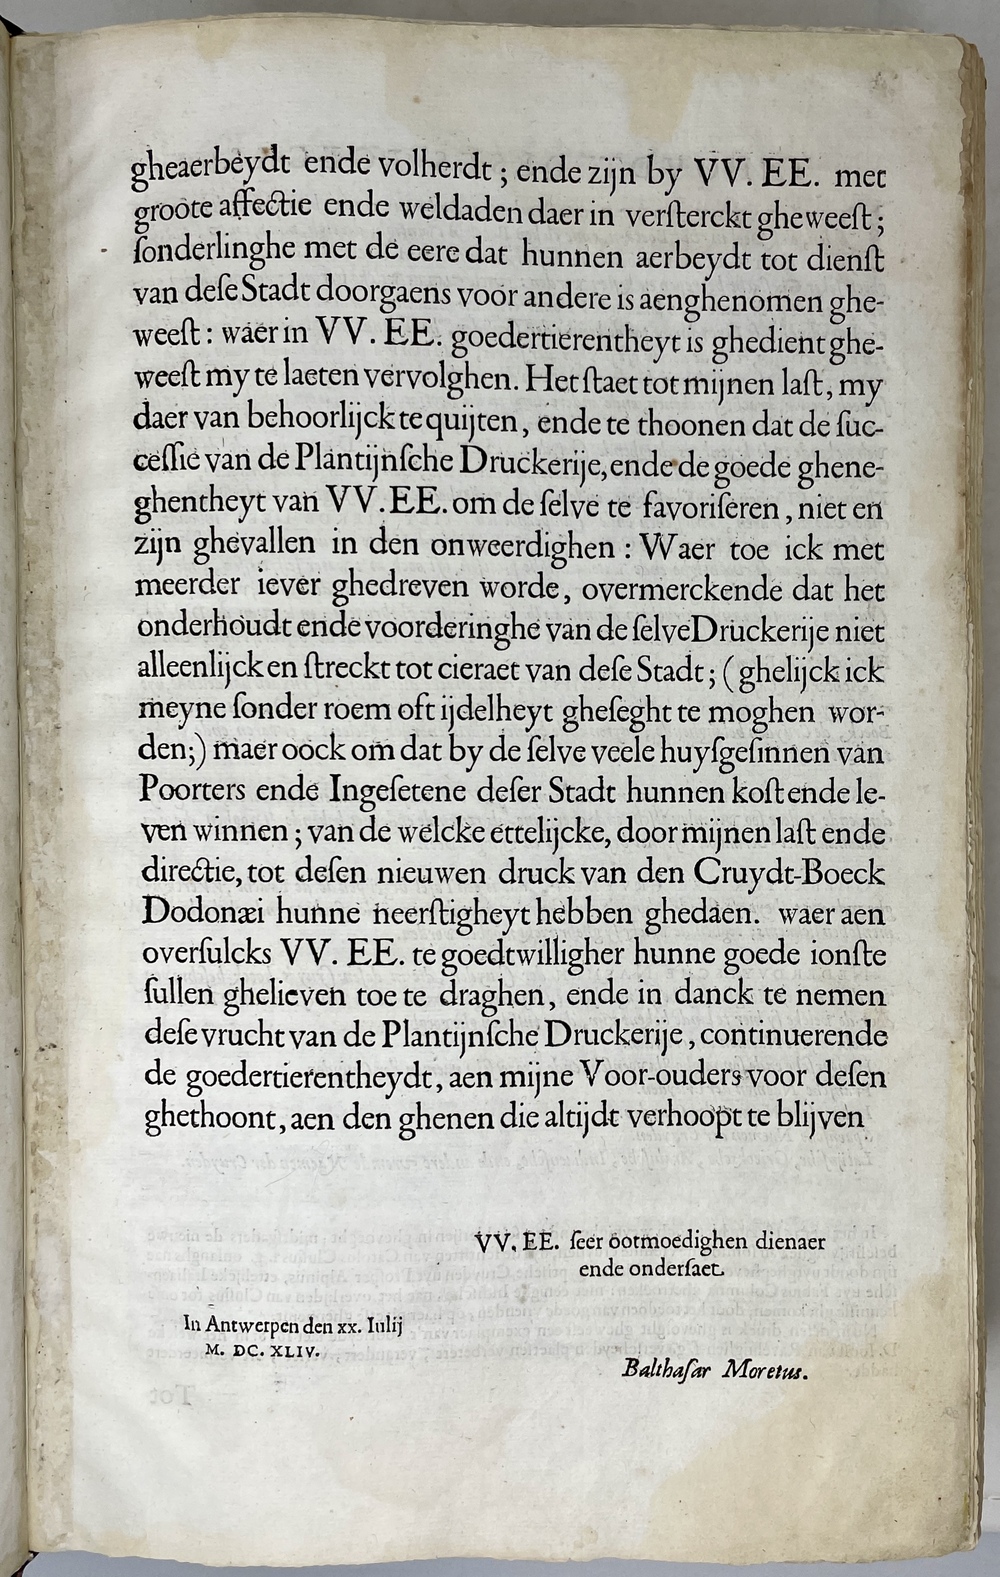 gheaerbeydt ende volherdt ; ende zijn by VV. EE. met
groote affectie ende weldaden daer in verſterckt gheweeſt ;
ſonderlinghe met de eere dat hunnen aerbeydt tot dienſt
van deſe Stadt doorgaens voor andere is aenghenomen ghe-
weeſt : waer in VV. EE. goedertierentheyt is ghedient ghe-
weeſt my te laeten vervolghen. Het ſtaet tot mijnen laſt, my
daer van behoorlijck te quijten, ende te thoonen dat de ſuc-
ceſſie van de Plantijnſche Druckerije, ende de goede ghene-
ghentheyt van VV. EE. om de ſelve te favoriſeren, niet en
zijn ghevallen in den onweerdighen : Waer toe ick met
meerder iever ghedreven worde, overmerckende dat het
onderhoudt ende voorderinghe van de ſelve Druckerije niet
alleenlijck en ſtreckt tot cieraet van deſe Stadt ; (ghelijck ick
meyne ſonder roem oft ijdelheyt gheſeght te moghen wor-
den;) maer oock om dat by de ſelve veele huyſgeſinnen van
Poorters ende Ingeſetene deſer Stadt hunnen koſt ende le-
ven winnen ; van de welcke ettelijcke, door mijnen laſt ende
directie, tot deſen nieuwen druck van den Cruydt-Boeck
Dodonæi hunne neerſtigheyt hebben ghedaen. waer aen
overſulcks VV. EE. te goedtwilligher hunne goede ionſte
ſullen ghelieven toe te draghen, ende in danck te nemen
deſe vrucht van de Plantijnſche Druckerije, continuerende
de goedertierentheydt, aen mijne Voor-ouders voor deſen
ghethoont, aen den ghenen die altijdt verhoopt te blijven
VV. EE. ſeer ootmoedighen dienaer
ende onderſaet.
In Antwerpen den xx. Iulij
M. DC. XLIV.
Balthaſar Moretus.